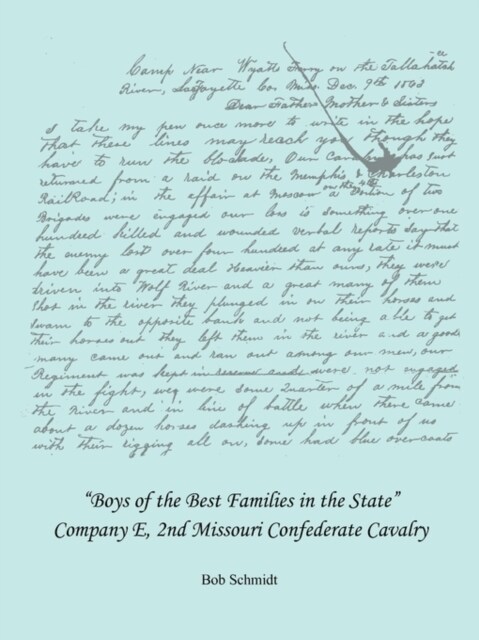 Camp Near Wyatts Ferry on the Tallahatchee
River, Lafayette Co. Miss Dec. 9th 1863
Dear Father Mother & Sisters
I take my pen once more to write in the hope
that these lines may reach you though they
have to run the blockade, Our Cavalry has just
returned from a raid on the Memphis & Charleston
RailRoad, in the affair at Moscow on the 4th a Portion of two
Brigades were engaged our loss is something over one
hundred killed and wounded verbal reports say that
the enemy lost over four hundred at any rate it must
have been a great deal Heavier than ours, they were
driven into Wolf River and a great many of them
Shot in the river they plunged in on their horses and
Swam to the opposite bank and not being able to get
their horses out they left them in the river and a good
many came out and ran out among our men, our
Regiment was kept in reserve and were not engaged
in the fight, we were some Quarter of a mile from
the River and in line of battle when there came
about a dozen horses dashing up in front of us
with their rigging all on, some had blue overcoats
“Boys of the Best Families in the State”
Company E, 2nd Missouri Confederate Cavalry
Bob Schmidt